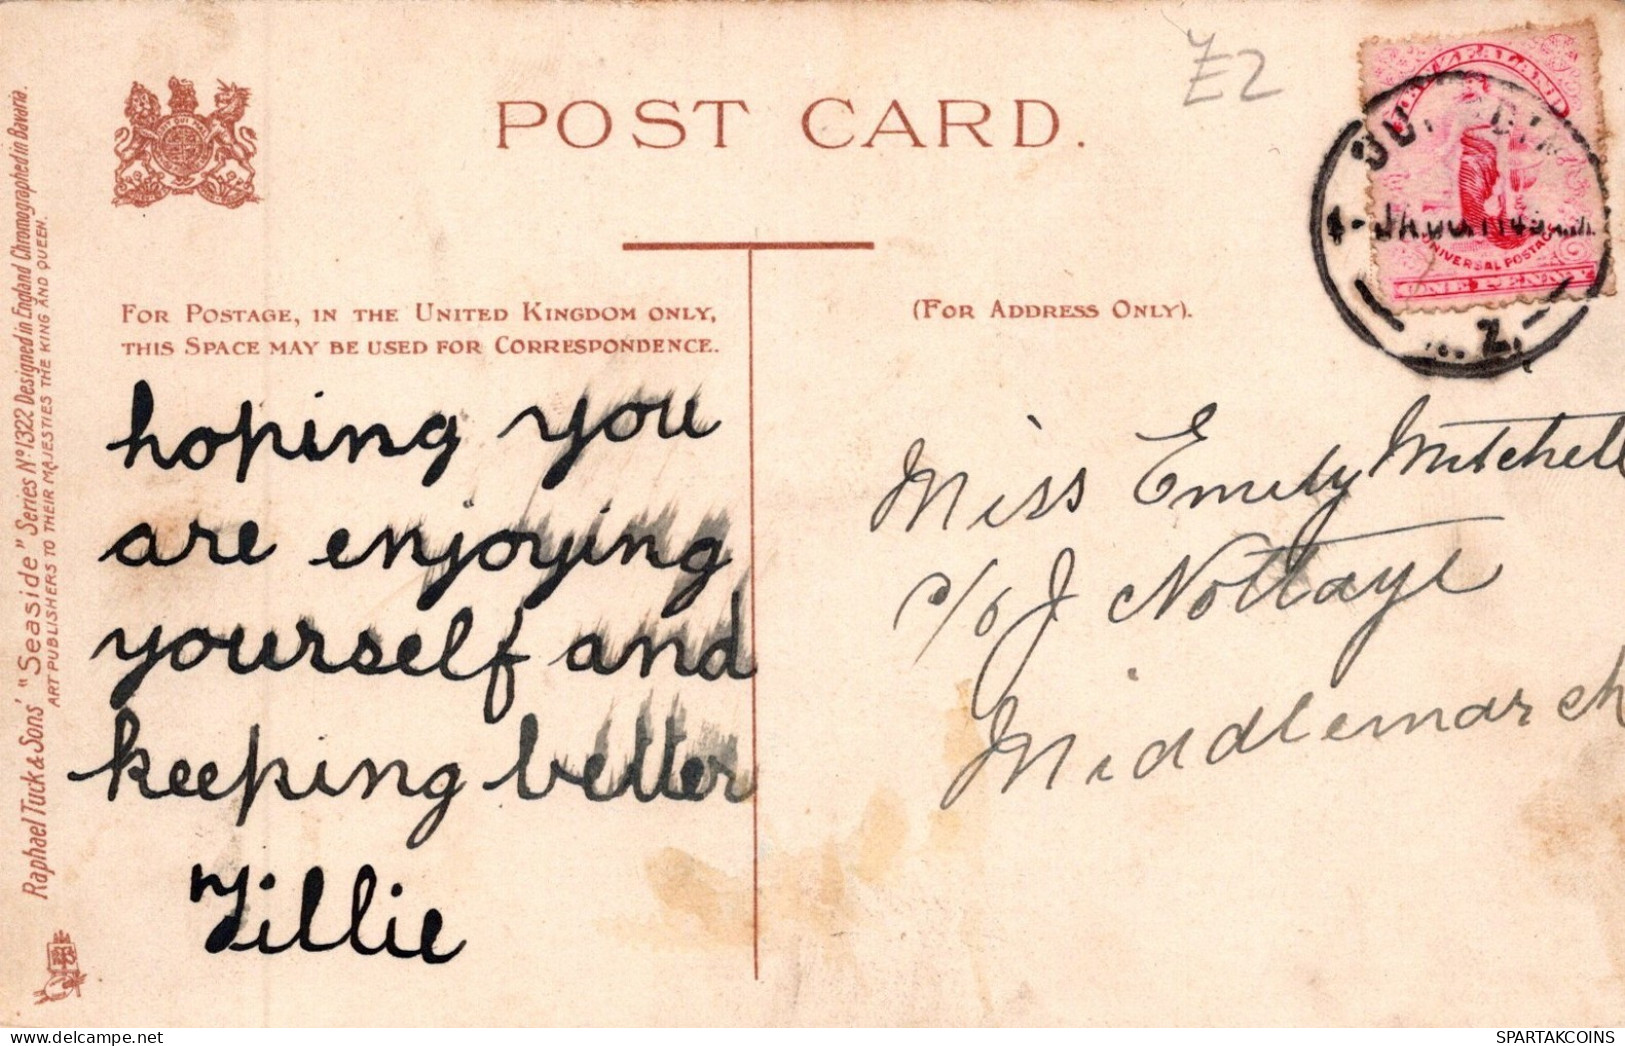 POST CARD.
Z2
NEW ZEALAND
UNIVERSAL POSTAGE
ONE PENNY
Raphael Tuck & Sons' "Seaside" Series Nº 1322 Designed in England Chromographed in Bavaria.
ART PUBLISHERS TO THEIR MAJESTIES THE KING AND QUEEN.
FOR POSTAGE, IN THE UNITED KINGDOM ONLY,
THIS SPACE MAY BE USED FOR CORRESPONDENCE.
(FOR ADDRESS ONLY).
hoping you
are enjoying
yourself and
keeping better
Tillie
Miss Emily Mitchell
c/o J Nottage
Middlemarch
SPARTAKCOINS